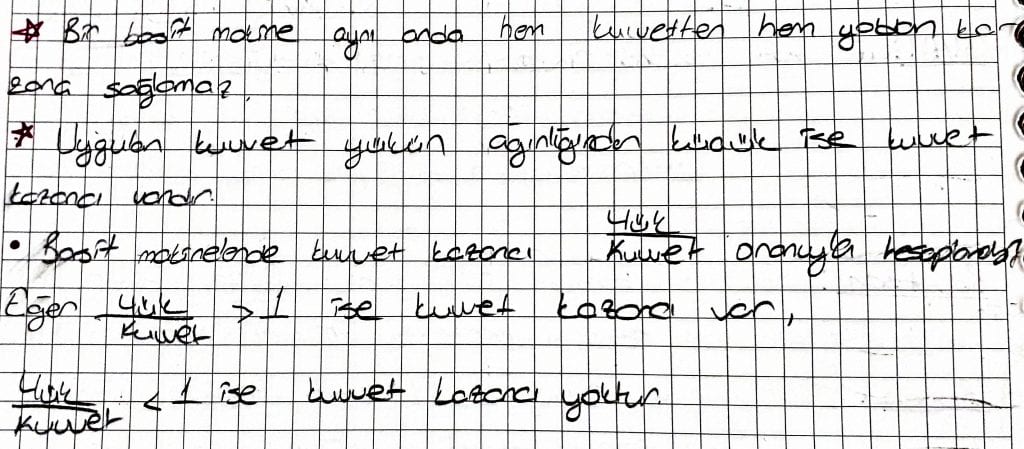 * Bir basit makine aynı anda hem kuvvetten hem yoldan ka-
zanç sağlamaz.
* Uygulan kuvvet yükün ağırlığından küçük ise kuvvet
kazancı vardır.
• Basit makinelerde kuvvet kazancı Yük/Kuvvet oranıyla hesaplanır.
Eğer Yük/Kuvvet > 1 ise kuvvet kazancı var,
Yük/Kuvvet < 1 ise kuvvet kazancı yoktur.